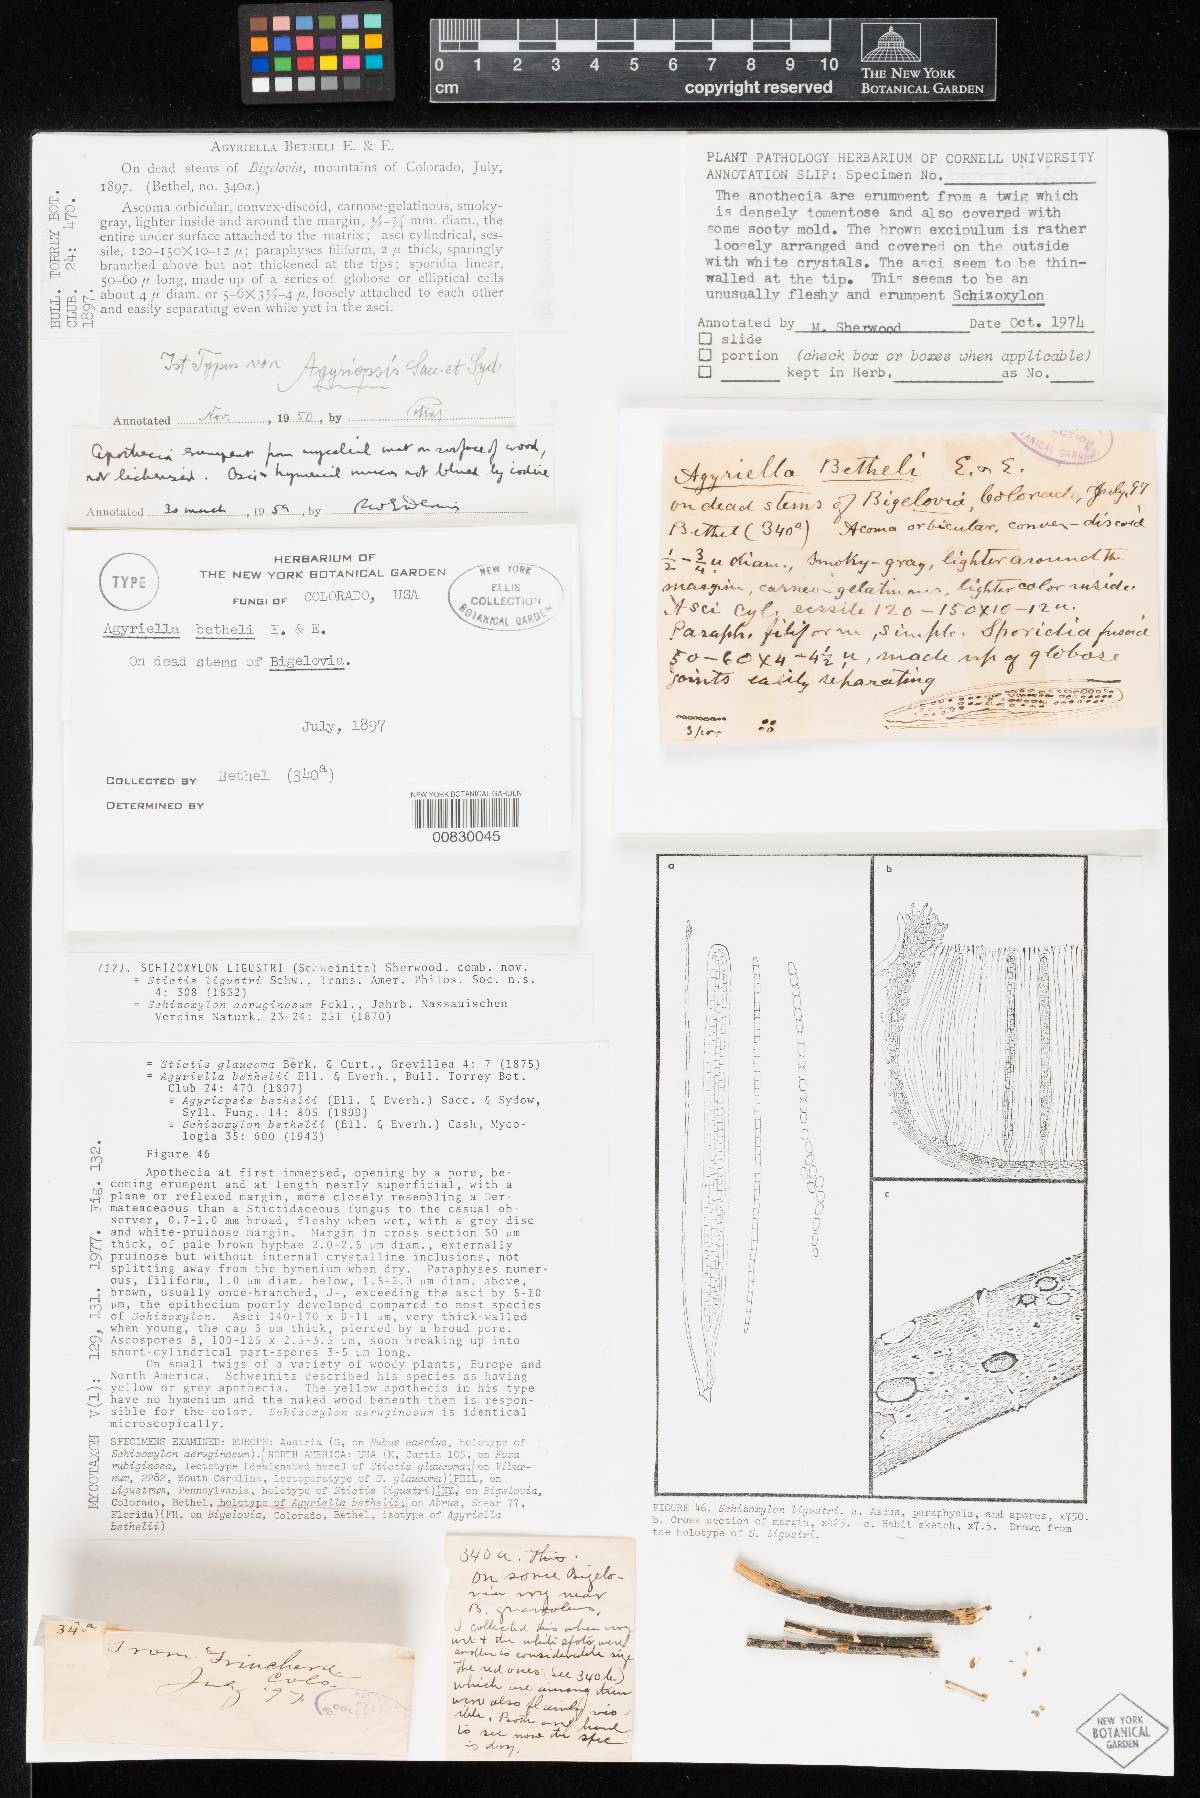 0 1 2 3 4 5 6 7 8 9 10
cm
copyright reserved
THE NEW YORK
BOTANICAL GARDEN
AGYRIELLA BETHELI E. & E.
On dead stems of Bigelovia, mountains of Colorado, July,
1897. (Bethel, no. 340a.)
Ascoma orbicular, convex-discoid, carnose-gelatinous, smoky-
gray, lighter inside and around the margin, ½–¾ mm. diam., the
entire under surface attached to the matrix; asci cylindrical, ses-
sile, 120–150X10–12 µ; paraphyses filiform, 2 µ thick, sparingly
branched above but not thickened at the tips; sporidia linear,
50–60 µ long, made up of a series of globose or elliptical cells
about 4 µ diam. or 5–6X3½–4 µ, loosely attached to each other
and easily separating even while yet in the asci.
BULL. TORREY BOT.
CLUB. 24: 470.
1897.
Ist Typus von Agyriopsis Sacc. et Syd.
Annotated Nov. , 19 50 , by
Apothecia erumpent from mycelial mat on surface of wood,
not lichenised. Asci & hymenial mucus not blued by iodine
Annotated 30 march , 19 59 , by RWG Dennis
TYPE
HERBARIUM OF
THE NEW YORK BOTANICAL GARDEN
FUNGI OF COLORADO, USA
NEW YORK
ELLIS
COLLECTION
BOTANICAL GARDEN
Agyriella betheli E. & E.
On dead stems of Bigelovia.
July, 1897
COLLECTED BY Bethel (340a)
DETERMINED BY
NEW YORK BOTANICAL GARDEN
00830045
PLANT PATHOLOGY HERBARIUM OF CORNELL UNIVERSITY
ANNOTATION SLIP: Specimen No.
The apothecia are erumpent from a twig which
is densely tomentose and also covered with
some sooty mold. The brown excipulum is rather
loosely arranged and covered on the outside
with white crystals. The asci seem to be thin-
walled at the tip. This seems to be an
unusually fleshy and erumpent Schizoxylon
Annotated by M. Sherwood Date Oct. 1974
slide
portion (check box or boxes when applicable)
kept in Herb. as No.
Agyriella Betheli E. & E.
on dead stems of Bigelovia, Colorado, July, 97
Bethel (340a) Acoma orbicular, convex-discoid
½–¾ u diam., smoky-gray, lighter around the
margin, carneo-gelatinous, lighter color inside.
Asci cyl. sessile 120–150X10–12u.
Paraph. filiform, simple. Sporidia fusoid
50–60X4–4½ u, made up of globose
joints easily separating
Spor.
(17). SCHIZOXYLON LIGUSTRI (Schweinitz) Sherwood. comb. nov.
≡ Stictis ligustri Schw., Trans. Amer. Philos. Soc. n.s.
4: 308 (1832)
= Schizoxylon aeruginosum Fckl., Jahrb. Nassauischen
Vereins Naturk. 23-24: 251 (1870)
= Stictis glaucoma Berk. & Curt., Grevillea 4: 7 (1875)
= Agyriella bethelii Ell. & Everh., Bull. Torrey Bot.
Club 24: 470 (1897)
≡ Agyriopsis bethelii (Ell. & Everh.) Sacc. & Sydow,
Syll. Fung. 14: 805 (1899)
≡ Schizoxylon bethelii (Ell. & Everh.) Cash, Myco-
logia 35: 600 (1943)
Figure 46
Apothecia at first immersed, opening by a pore, be-
coming erumpent and at length nearly superficial, with a
plane or reflexed margin, more closely resembling a Der-
mateaceaous than a Stictidaceous fungus to the casual ob-
server, 0.7-1.0 mm broad, fleshy when wet, with a grey disc
and white-pruinose margin. Margin in cross section 50 µm
thick, of pale brown hyphae 2.0-2.5 µm diam., externally
pruinose but without internal crystalline inclusions, not
splitting away from the hymenium when dry. Paraphyses numer-
ous, filiform, 1.0 µm diam. below, 1.5-2.0 µm diam. above,
brown, usually once-branched, J-, exceeding the asci by 5-10
µm, the epithecium poorly developed compared to most species
of Schizoxylon. Asci 140-170 x 9-11 µm, very thick-walled
when young, the cap 3 µm thick, pierced by a broad pore.
Ascospores 8, 100-125 x 2.5-3.5 µm, soon breaking up into
short-cylindrical part-spores 3-5 µm long.
On small twigs of a variety of woody plants, Europe and
North America. Schweinitz described his species as having
yellow or grey apothecia. The yellow apothecia in his type
have no hymenium and the naked wood beneath them is respon-
sible for the color. Schizoxylon aeruginosum is identical
microscopically.
SPECIMENS EXAMINED: EUROPE: Austria (G, on Rubus caesius, holotype of
Schizoxylon aeruginosum). NORTH AMERICA: USA (K, Curtis 105, on Rosa
rubiginosa, lectotype [designated here] of Stictis glaucoma; on Vibur-
num, 2282, South Carolina, lectoparatype of S. glaucoma)(PHIL, on
Ligustrum, Pennsylvania, holotype of Stictis ligustri)(NY, on Bigelovia,
Colorado, Bethel, holotype of Agyriella bethelii; on Abrus, Shear 77,
Florida)(FH, on Bigelovia, Colorado, Bethel, isotype of Agyriella
bethelii)
MYCOTAXON V(1): 129, 131. 1977. Fig. 132.
a
b
c
FIGURE 46. Schizoxylon ligustri. a. Ascus, paraphysis, and spores, x750.
b. Cross section of margin, x425. c. Habit sketch, x7.5. Drawn from
the holotype of S. ligustri.
340a
From Trinchera
Colo.
July '97.
340a. This.
On some Bigelo-
via very near
B. graveolens.
I collected this when very
wet & the white spots were
swollen to considerable size
The red ones (see 340b)
which are among them
were also plainly vis-
ible. Both are hard
to see now the spec
is dry.
NEW YORK
BOTANICAL
GARDEN